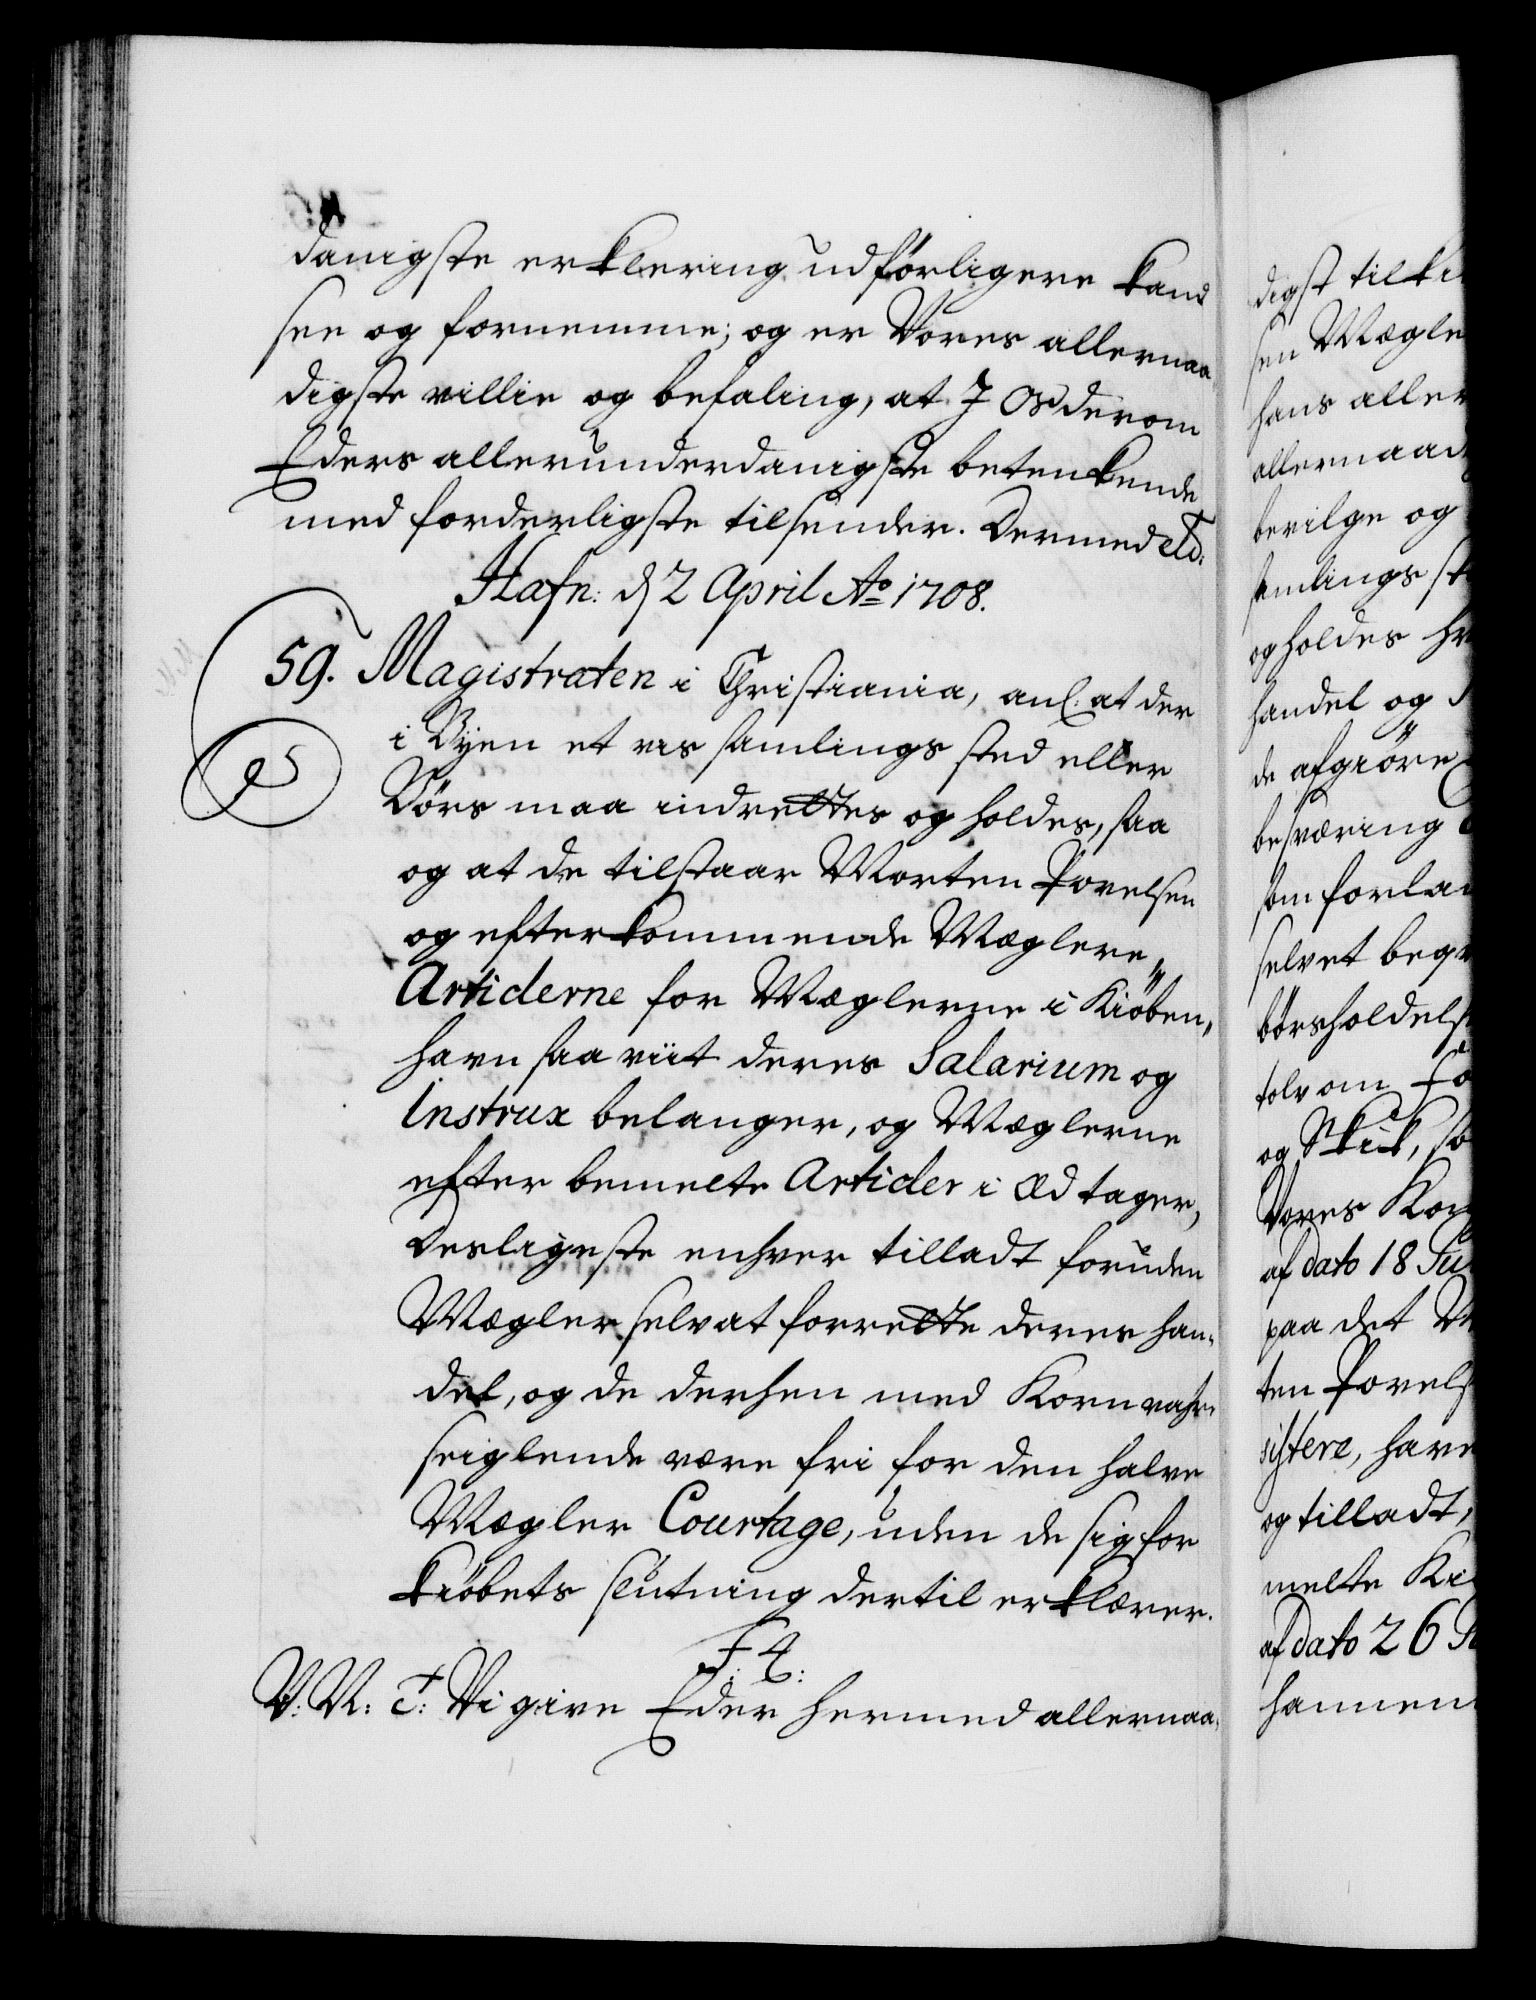 danigste erklering udförligere kand
see og fornemme; og er Vores allernaa
digste villie og befaling, at I Os derom
Eders allerunderdanigste betenkende
med forderligste tilsender. Dermed etc:
Hafn: d 2 April Ao 1708.
59. Magistraten i Christiania, anl: at der
i Byen et vis samlings sted eller
Börs maa indrettes og holdes, saa
og at de tilstaar Morten Povelsen
og efterkommende Mæglere,
Articlerne for Mæglerne i Kiöben,,
havn saa viit deres Salarium og
Instrux belanger, og Mæglerne
efter bemelte Articler i Æd tager,
Desligeste enhver tilladt foruden
Mægler selv at forrette deres han-
del, og de derhen med Kornvahre
seiglende være fri for den halve
Mægler Courtage, uden de sig for
kiöbets slutning dertil erklærer.
F 4:
V: N: T: Vi give Eder hermed allernaa,
digst tilki
sen Mægle
hans aller
allernaad
bevilge og
samlings st
og holdes hv
handel og
de afgiöre
besværing
som forla
selvet beqv
börsholdels
tolv om Fo
og Skik, so
Vores Kon
af dato 18 Ju
paa det M
ten Povels
sistere, have
og tilladt,
melte Ki
af dato 26
hannem